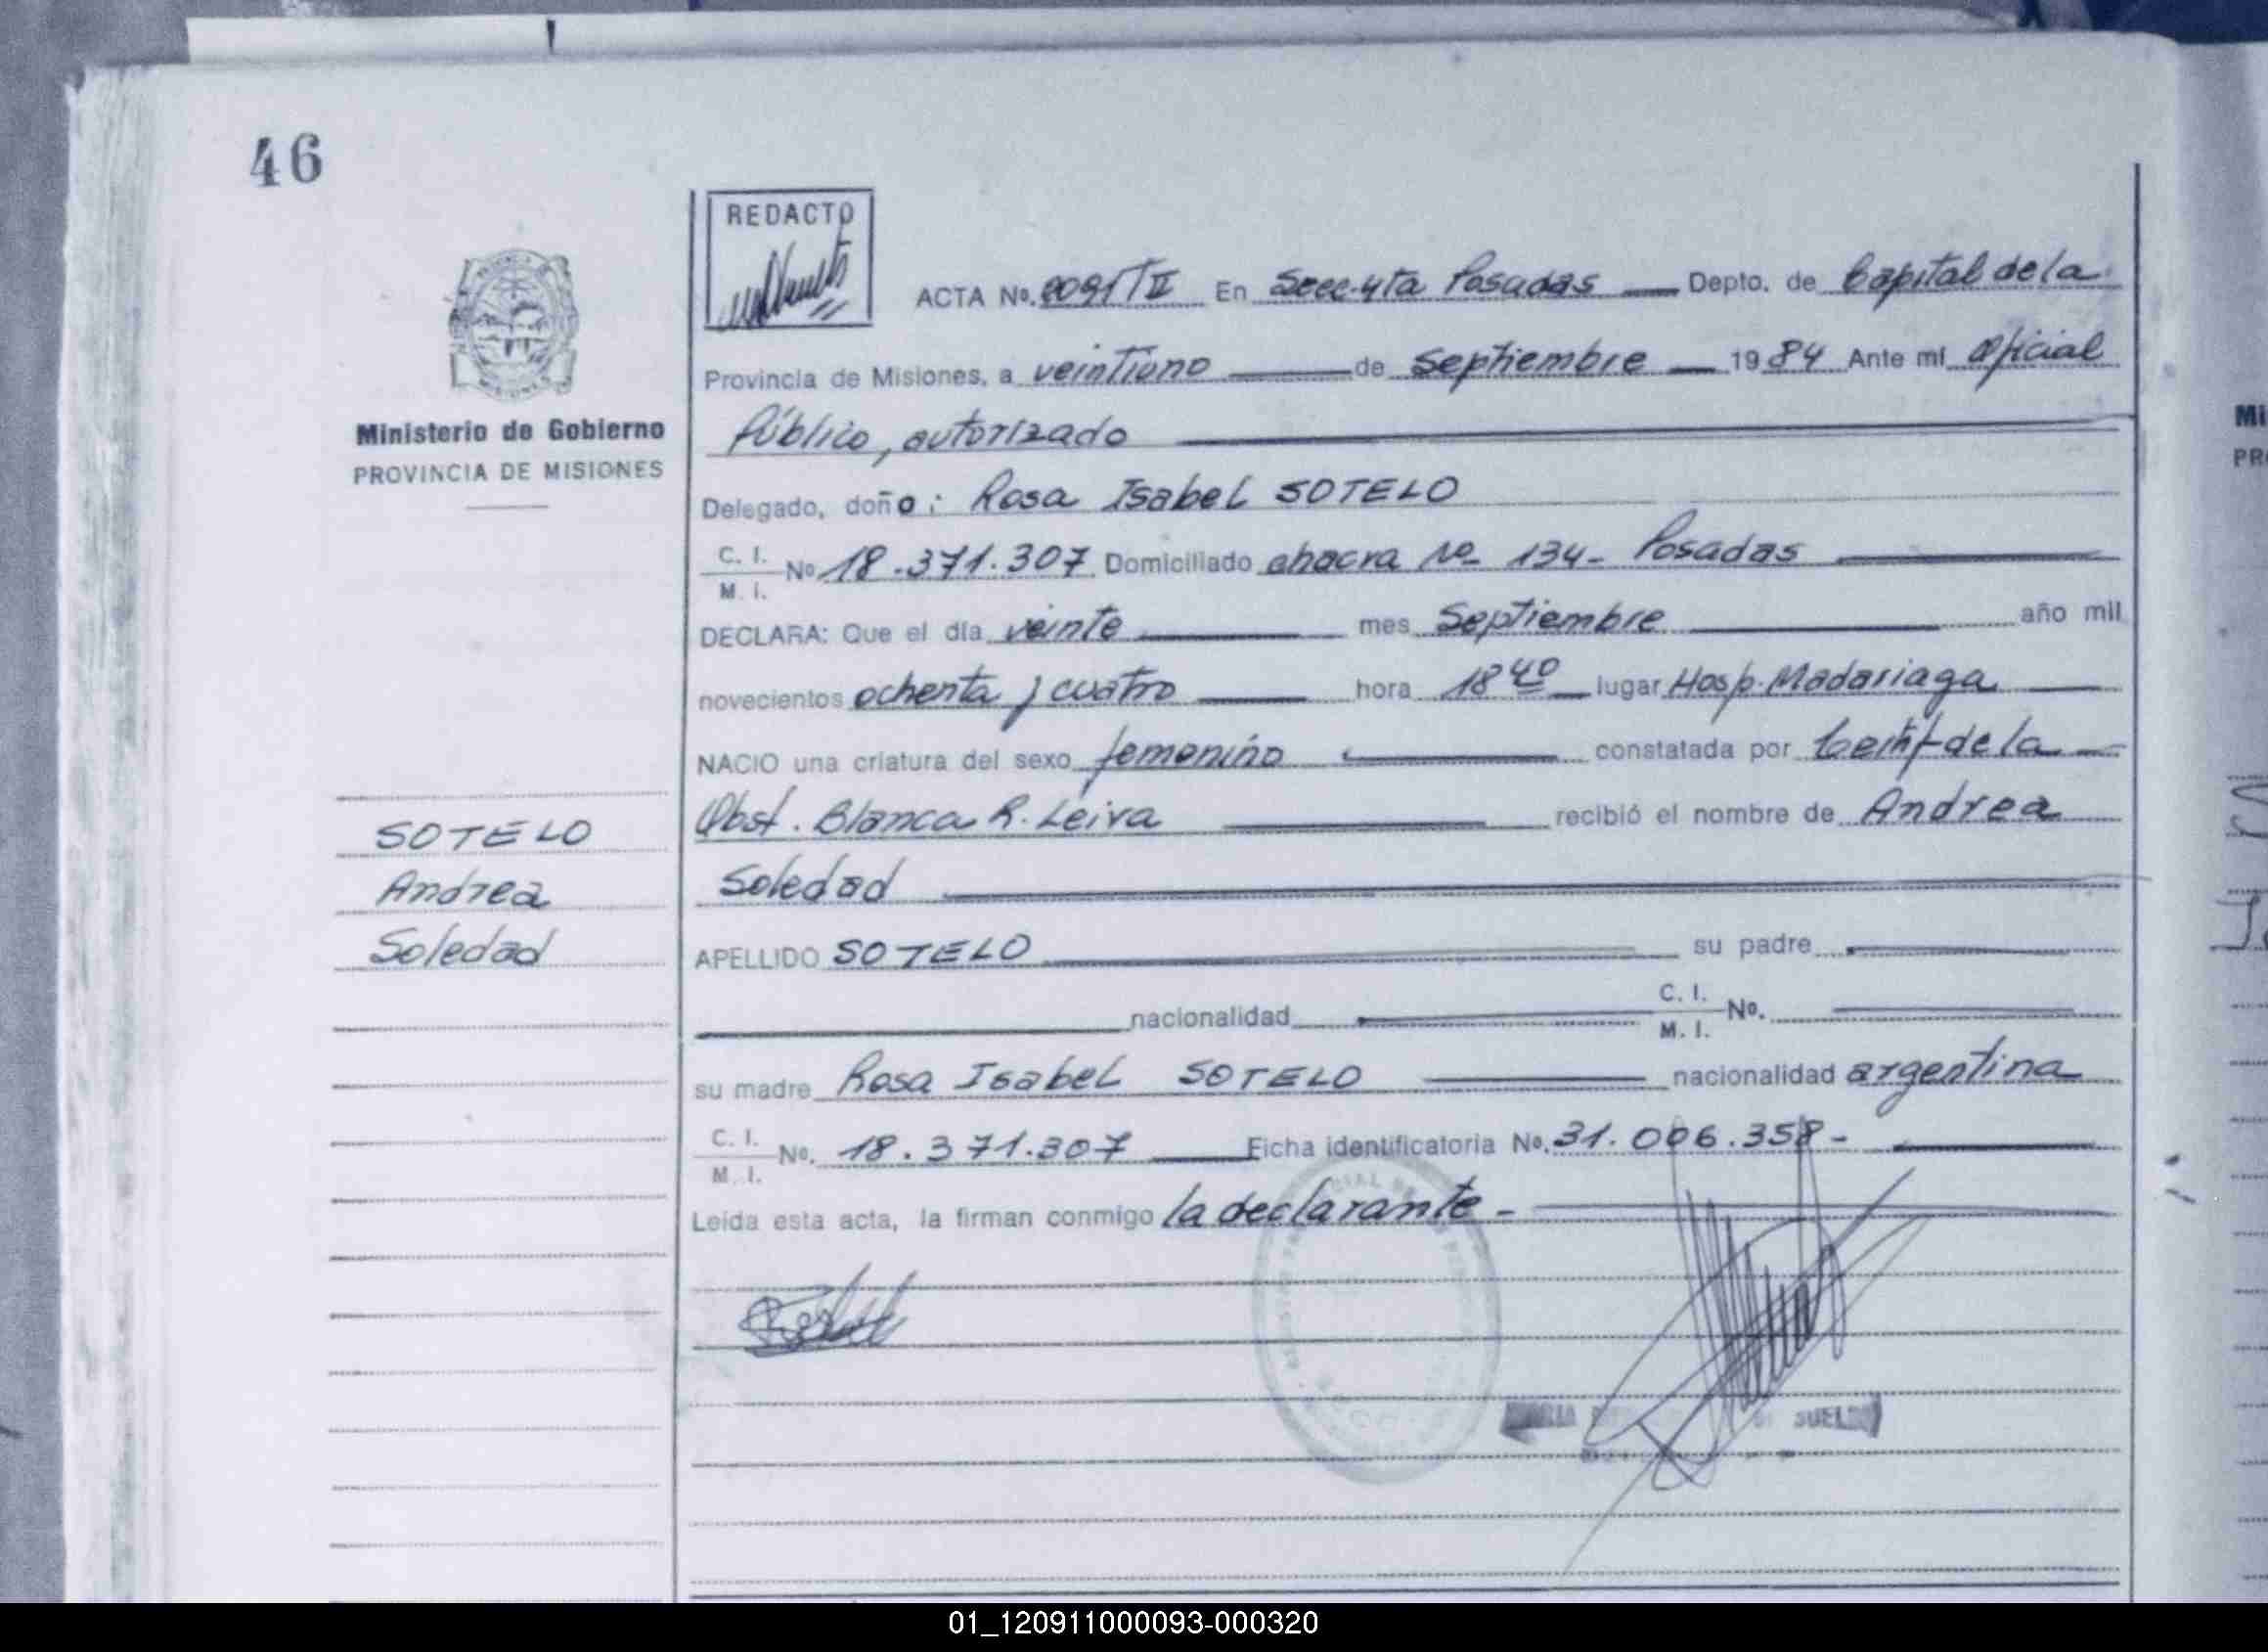 46
REDACTO
ACTA No. 2091/II En Secc. 4ta Posadas Depto. de Capital de la
Provincia de Misiones, a veintiuno de Septiembre 1984 Ante mí Oficial
Ministerio de Gobierno
PROVINCIA DE MISIONES
Público, autorizado
Delegado, doña: Rosa Isabel SOTELO
C. I.
M. I.
No 18.371.307 Domiciliado chacra No 134- Posadas
DECLARA: Que el día veinte mes Septiembre año mil
novecientos ochenta y cuatro hora 18 40 lugar Hosp. Madariaga
NACIO una criatura del sexo femenino constatada por Certif. de la
Obst. Blanca R. Leiva recibió el nombre de Andrea
Soledad
SOTELO
Andrea
Soledad
APELLIDO SOTELO su padre
nacionalidad C. I.
M. I. No.
su madre Rosa Isabel SOTELO nacionalidad argentina
C. I.
M. I.
No. 18.371.307 Ficha identificatoria No. 31.006.358-
Leída esta acta, la firman conmigo la declarante-
01_120911000093-000320